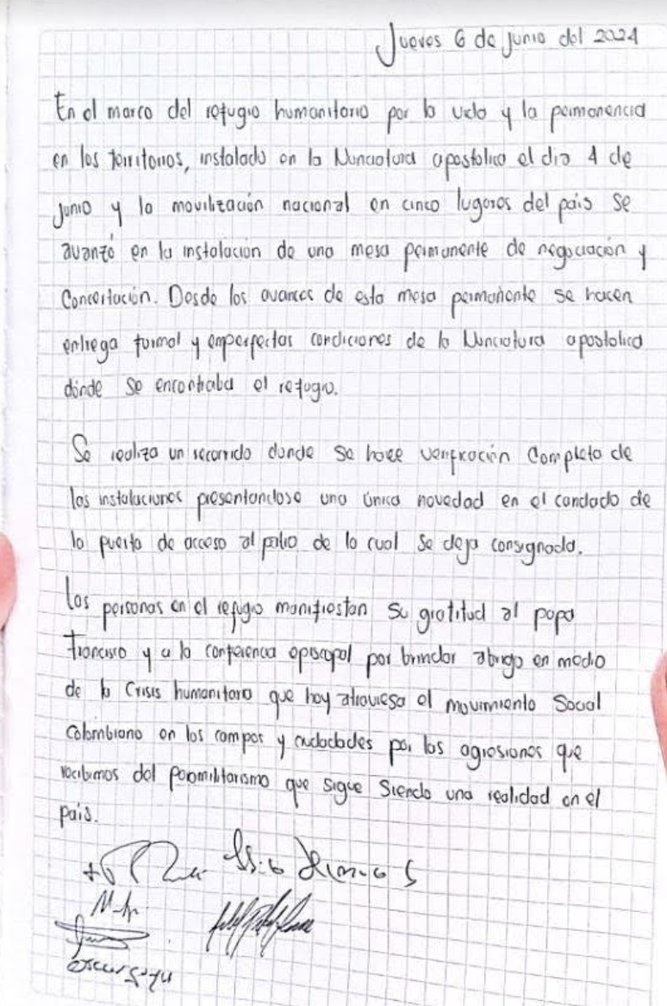 Jueves 6 de junio del 2024
En el marco del refugio humanitario por la vida y la permanencia
en los territorios, instalado en la Nunciatura apostolica el dia 4 de
junio y la movilización nacional en cinco lugares del pais se
avanzó en la instalacion de una mesa permanente de negociación y
Concertación. Desde los avances de esta mesa permanente se hacen
entrega formal y emperfectas condiciones de la Nunciatura apostolica
dónde se encontraba el refugio.
Se realiza un recorrido donde se hace verificación Completa de
las instalaciones presentandose una única novedad en el candado de
la puerta de acceso al patio de la cual se deja consignada.
Las personas en el refugio manifiestan su gratitud al papa
francisco y a la conferencia episcopal por brindar abrigo en medio
de la Crisis humanitaria que hoy atraviesa el movimiento Social
Colombiano en los campos y ciudades por las agresiones que
recibimos del paramilitarismo que sigue Siendo una realidad en el
país.